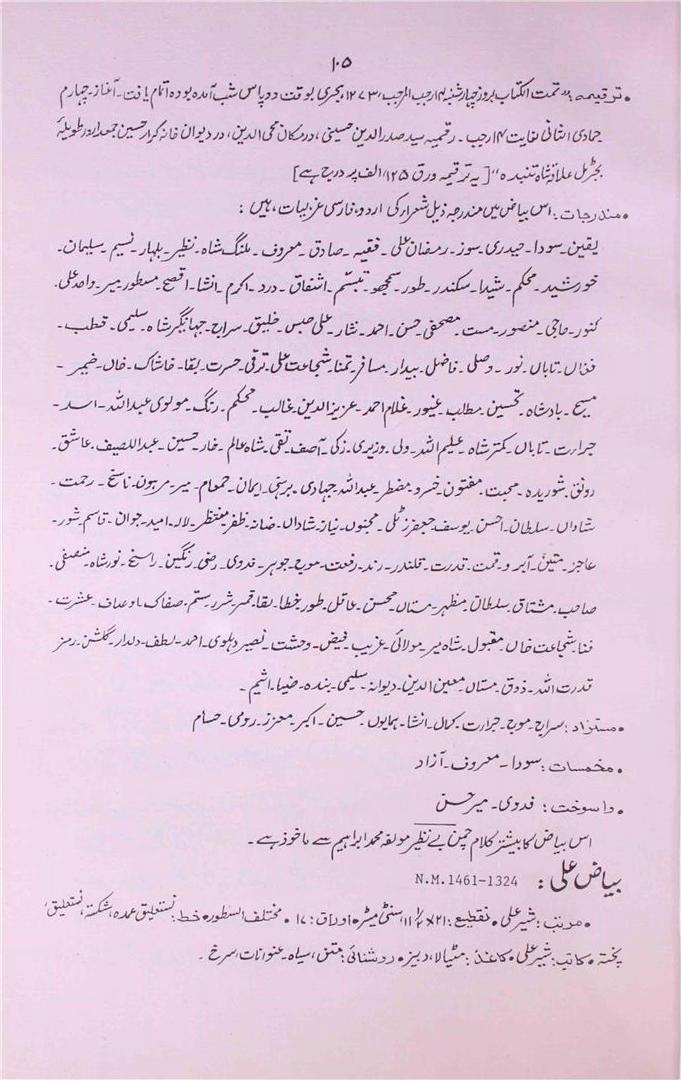 ۱۰۵
• ترقیمہ: "تمت الکتاب بروز چہارشنبہ ۱۴ رجب المرجب، ۱۲۷۳ ہجری بوقت دو پاس شب آمدہ بودہ اتمام یافت۔ آغاز۔ چہارم
جمادی الثانی لغایت ۱۴ رجب۔ رقمیہ سید صدر الدین حسینی، در مکان محی الدین، در دیوان خانہ کرار حسین جمعدار در طویلۂ
علاقۂ شاہ" [یہ ترقیمہ ورق ۱۲۵/ الف پر درج ہے]
• مندرجات: اس بیاض میں مندرجہ ذیل شعراء کی اردو، فارسی غزلیات، ہیں:
یقین۔ سودا۔ حیدری۔ سوز۔ رمضان علی۔ فقیہ۔ صادق۔ معروف۔ ملنگ شاہ۔ نظیر۔ بلہار۔ نسیم۔ سلیمان۔
خورشید۔ محکم۔ شیدا۔ سکندر۔ طور۔ سمجھو۔ تبسم۔ اشفاق۔ درد۔ اکرم۔ انشا۔ افصح۔ مسطور۔ میر۔ واحد علی۔
کنور۔ حاجی۔ منصور۔ مست۔ مصحفی۔ حسن۔ احمد۔ نثار۔ علی حبس۔ خلیق۔ سراج۔ جہانگیر شاہ۔ سلیمی۔ قطب۔
فغاں۔ تاباں۔ نور۔ وصلی۔ فاضل۔ بیدار۔ مسافر۔ تمنا۔ شجاعت علی۔ ترقی۔ حسرت۔ بقا۔ خاشاک۔ خاں۔ ضمیر۔
مسیح۔ بادشاہ۔ تحسین۔ مطلب۔ غیور۔ غلام احمد۔ عزیز الدین۔ غالب۔ محکم۔ رنگ۔ مولوی عبداللہ۔ اسد۔
جرارت۔ تاباں۔ کمتر شاہ۔ علیم اللہ۔ ولی۔ وزیری۔ زکی۔ آصف۔ تقی۔ شاہ عالم۔ خار۔ حسین۔ عبد اللصیف۔ عاشق۔
رونق۔ شوریدہ۔ محبت۔ مفتون۔ خسرو۔ مضطر۔ عبداللہ۔ جہادی۔ ایمان۔ حمعام۔ میر۔ مرہون۔ ناسخ۔ رحمت۔
شاداں۔ سلطان۔ احسن۔ یوسف۔ جعفر زٹلی۔ مجنوں۔ نیاز۔ شاداں۔ ضانہ۔ ظفر۔ منتظر۔ لالہ۔ امید۔ جوان۔ قاسم۔ شور۔
عاجز۔ متین۔ آبرو۔ قمت۔ قدرت۔ قلندر۔ رند۔ رفعت۔ موج۔ جوہر۔ فدوی۔ رضی۔ رنگین۔ راسخ۔ نور شاہ۔ منصفی۔
صاحب۔ مشتاق۔ سلطان۔ مظہر۔ مستاں۔ محسن۔ عاقل۔ طور۔ خطا۔ بقا۔ قمر۔ شرر۔ رستم۔ صفاک۔ اوصاف۔ عشرت۔
فنا۔ شجاعت خاں۔ مقبول۔ شاہ میر۔ مولائی۔ غریب۔ فیض۔ وحشت۔ نصیر دہلوی۔ احمد۔ لطف۔ دلدار۔ گلشن۔ رمز
قدرت اللہ۔ ذوق۔ مستاں۔ معین الدین۔ دیوانہ۔ سلیمی۔ بندہ۔ ضیا۔ اشیم۔
• مستزاد: سراج۔ موج۔ جرارت۔ کمال۔ انشا۔ ہمایوں۔ حسین۔ اکبر۔ معزز۔ رومی۔ حسام
• مخمسات: سودا۔ معروف۔ آزاد
• واسوخت: فدوی۔ میر حسن
اس بیاض کا بیشتر کلام چمن بے نظیر مولفہ محمد ابراہیم سے ماخوذ ہے۔
بیاض علی: N.M.1461-1324
• مرتب: شیر علی • تقطیع: ۲۱×۱۱½ سنٹی میٹر • اوراق: ۱۷ • مختلف السطور • خط: نستعلیق عمدہ، شکستہ، نستعلیق،
پختہ • کاتب: شیر علی • کاغذ: مٹیالا، دبیز • روشنائی: متن، سیاہ۔ عنوانات، سرخ۔